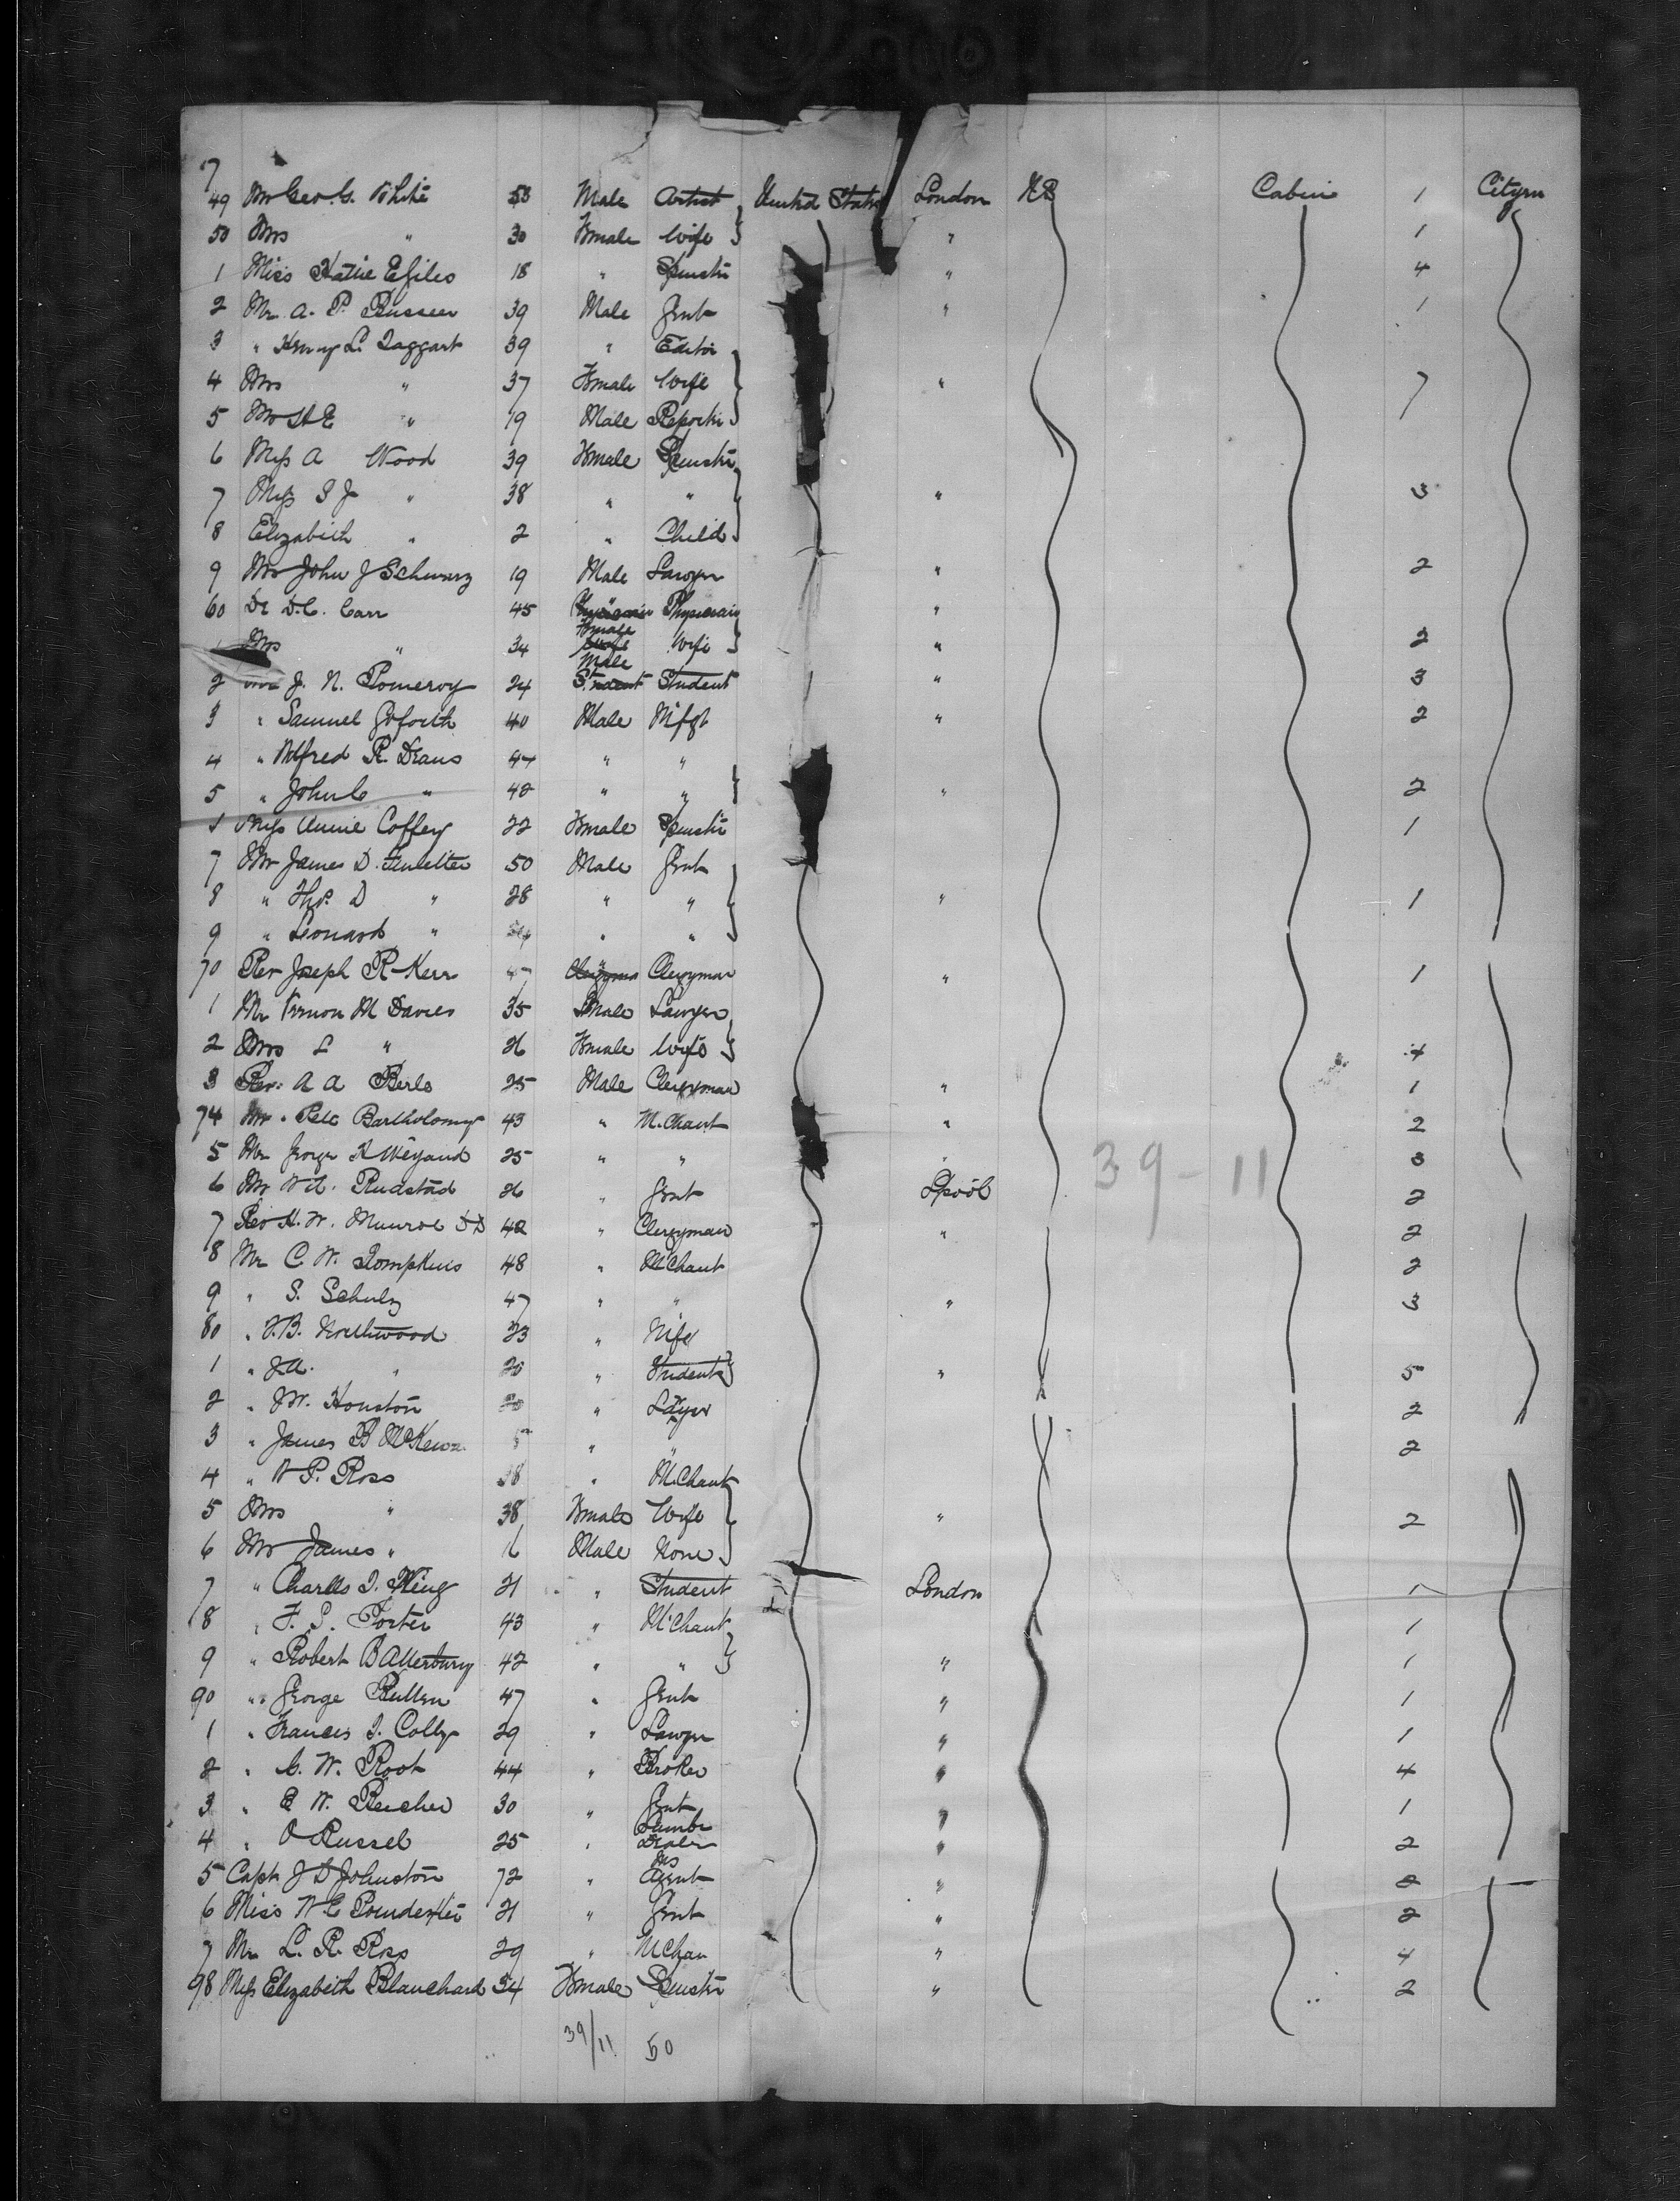 7
49 Mr Geo. G. White 53 Male Artist United States London NB Cabin 1 Cityzn
50 Mrs " 30 Fmale Wife " 1
1 Miss Katie E Giles 18 " Spinstr " 4
2 Mr A. P. Russeer 39 Male Gent " 1
3 " Henry L. Taggart 39 " Editor
4 Mrs " 37 Fmale Wife " 7
5 Mr H E " 19 Male Reportr
6 Miss A Wood 39 Fmale Spinstr
7 Miss S J " 38 " " " 3
8 Elizabeth " 2 " Child
9 Mr John J Schwarz 19 Male Lawyer " 2
60 Dr D. C. Carr 45 Physician Physician "
Female
Mrs " 34 Wife Wife " 2
Male
2 J. N. Pomeroy 24 Student Student " 3
3 " Samuel Goforth 40 Male Mifgt " 2
4 " Alfred R. Deans 44 " "
5 " John C " 48 " " " 2
Miss Annie Coffey 22 Fmale Spinstr 1
7 Mr James D. Finletter 50 Male Gent
8 " Thos. D " 28 " " " 1
9 " Leonard " " "
70 Rev Joseph R Kerr Clergyman Clergyman " 1
1 Mr Vernon M Davies 35 Male Lawyer
2 Mrs L " 26 Fmale Wife 4
3 Rev. A A Berle 25 Male Clergyman " 1
74 Mr Pete Bartholomy 43 " M. Chant " 2
5 Mr George K Weyand 25 " " " 3
39-11
6 Mr Rudstad 26 " Gent Lpool 2
7 Rev H. W. Munroe DD 42 " Clergyman " 2
8 Mr C. W. Tompkins 48 " M Chant 2
9 " S. Schulz 47 " " " 3
80 " F. B. Northwood 23 " Mife
1 " J. A. " 20 " Student " 5
2 " J W. Houston " Layer 2
3 " James B McKenz " " 2
4 " W P. Ross 38 " M. Chant
5 Mrs " 38 Fmale Wife " 2
6 Mr James " 16 Male None
7 " Charles J. King 21 " Student London 1
8 " F. S. Porter 43 " M Chant 1
9 " Robert B Atterbury 42 " " " 1
90 " George Bullen 47 " Gent " 1
1 " Francis J. Colby 29 " Lawyr " 1
2 " C. W. Root 44 " Broker " 4
3 " E W. Beecher 30 " Gent " 1
Lumbr
4 " O Russel 25 " Dealer " 2
Ins
5 Capt J D Johnston 72 " Agent " 2
6 Miss W E Poindexter 21 " Gent " 2
7 Mr L. R. Ross 29 " M Chan " 4
98 Miss Elizabeth Blanchard 54 Fmale Spinstr " 2
39/11 50